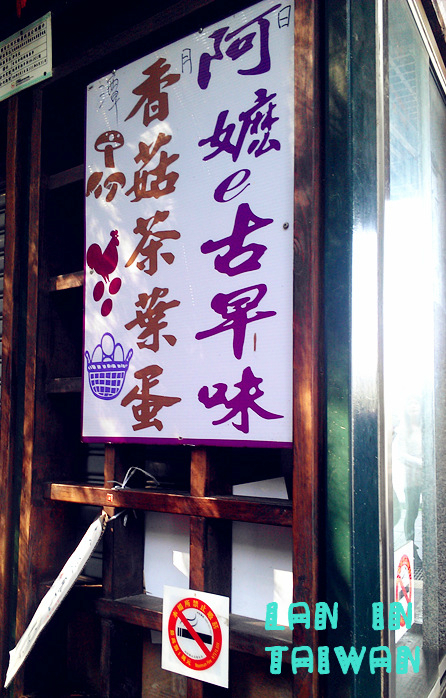 阿嬤e古早味
香菇茶葉蛋
日
月
潭
LAN IN
TAIWAN